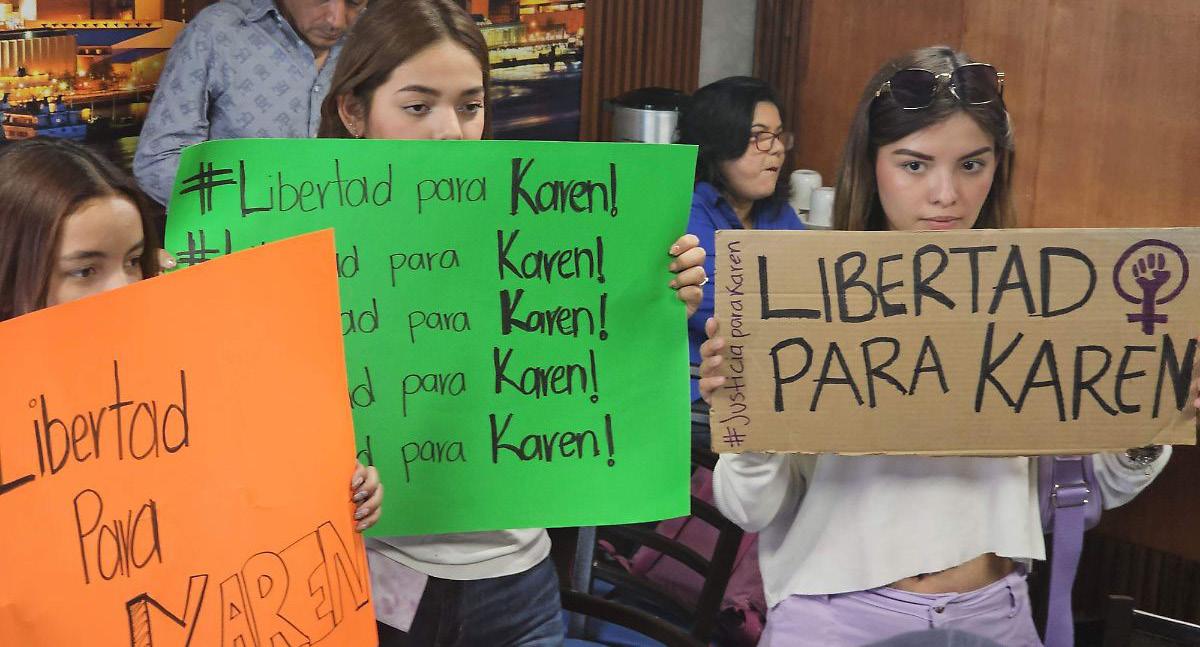 #Libertad para Karen!
#L
d para Karen!
ad para Karen!
d para Karen!
d para Karen!
Libertad
Para
KAREN
#Justicia para Karen
LIBERTAD
PARA KAREN